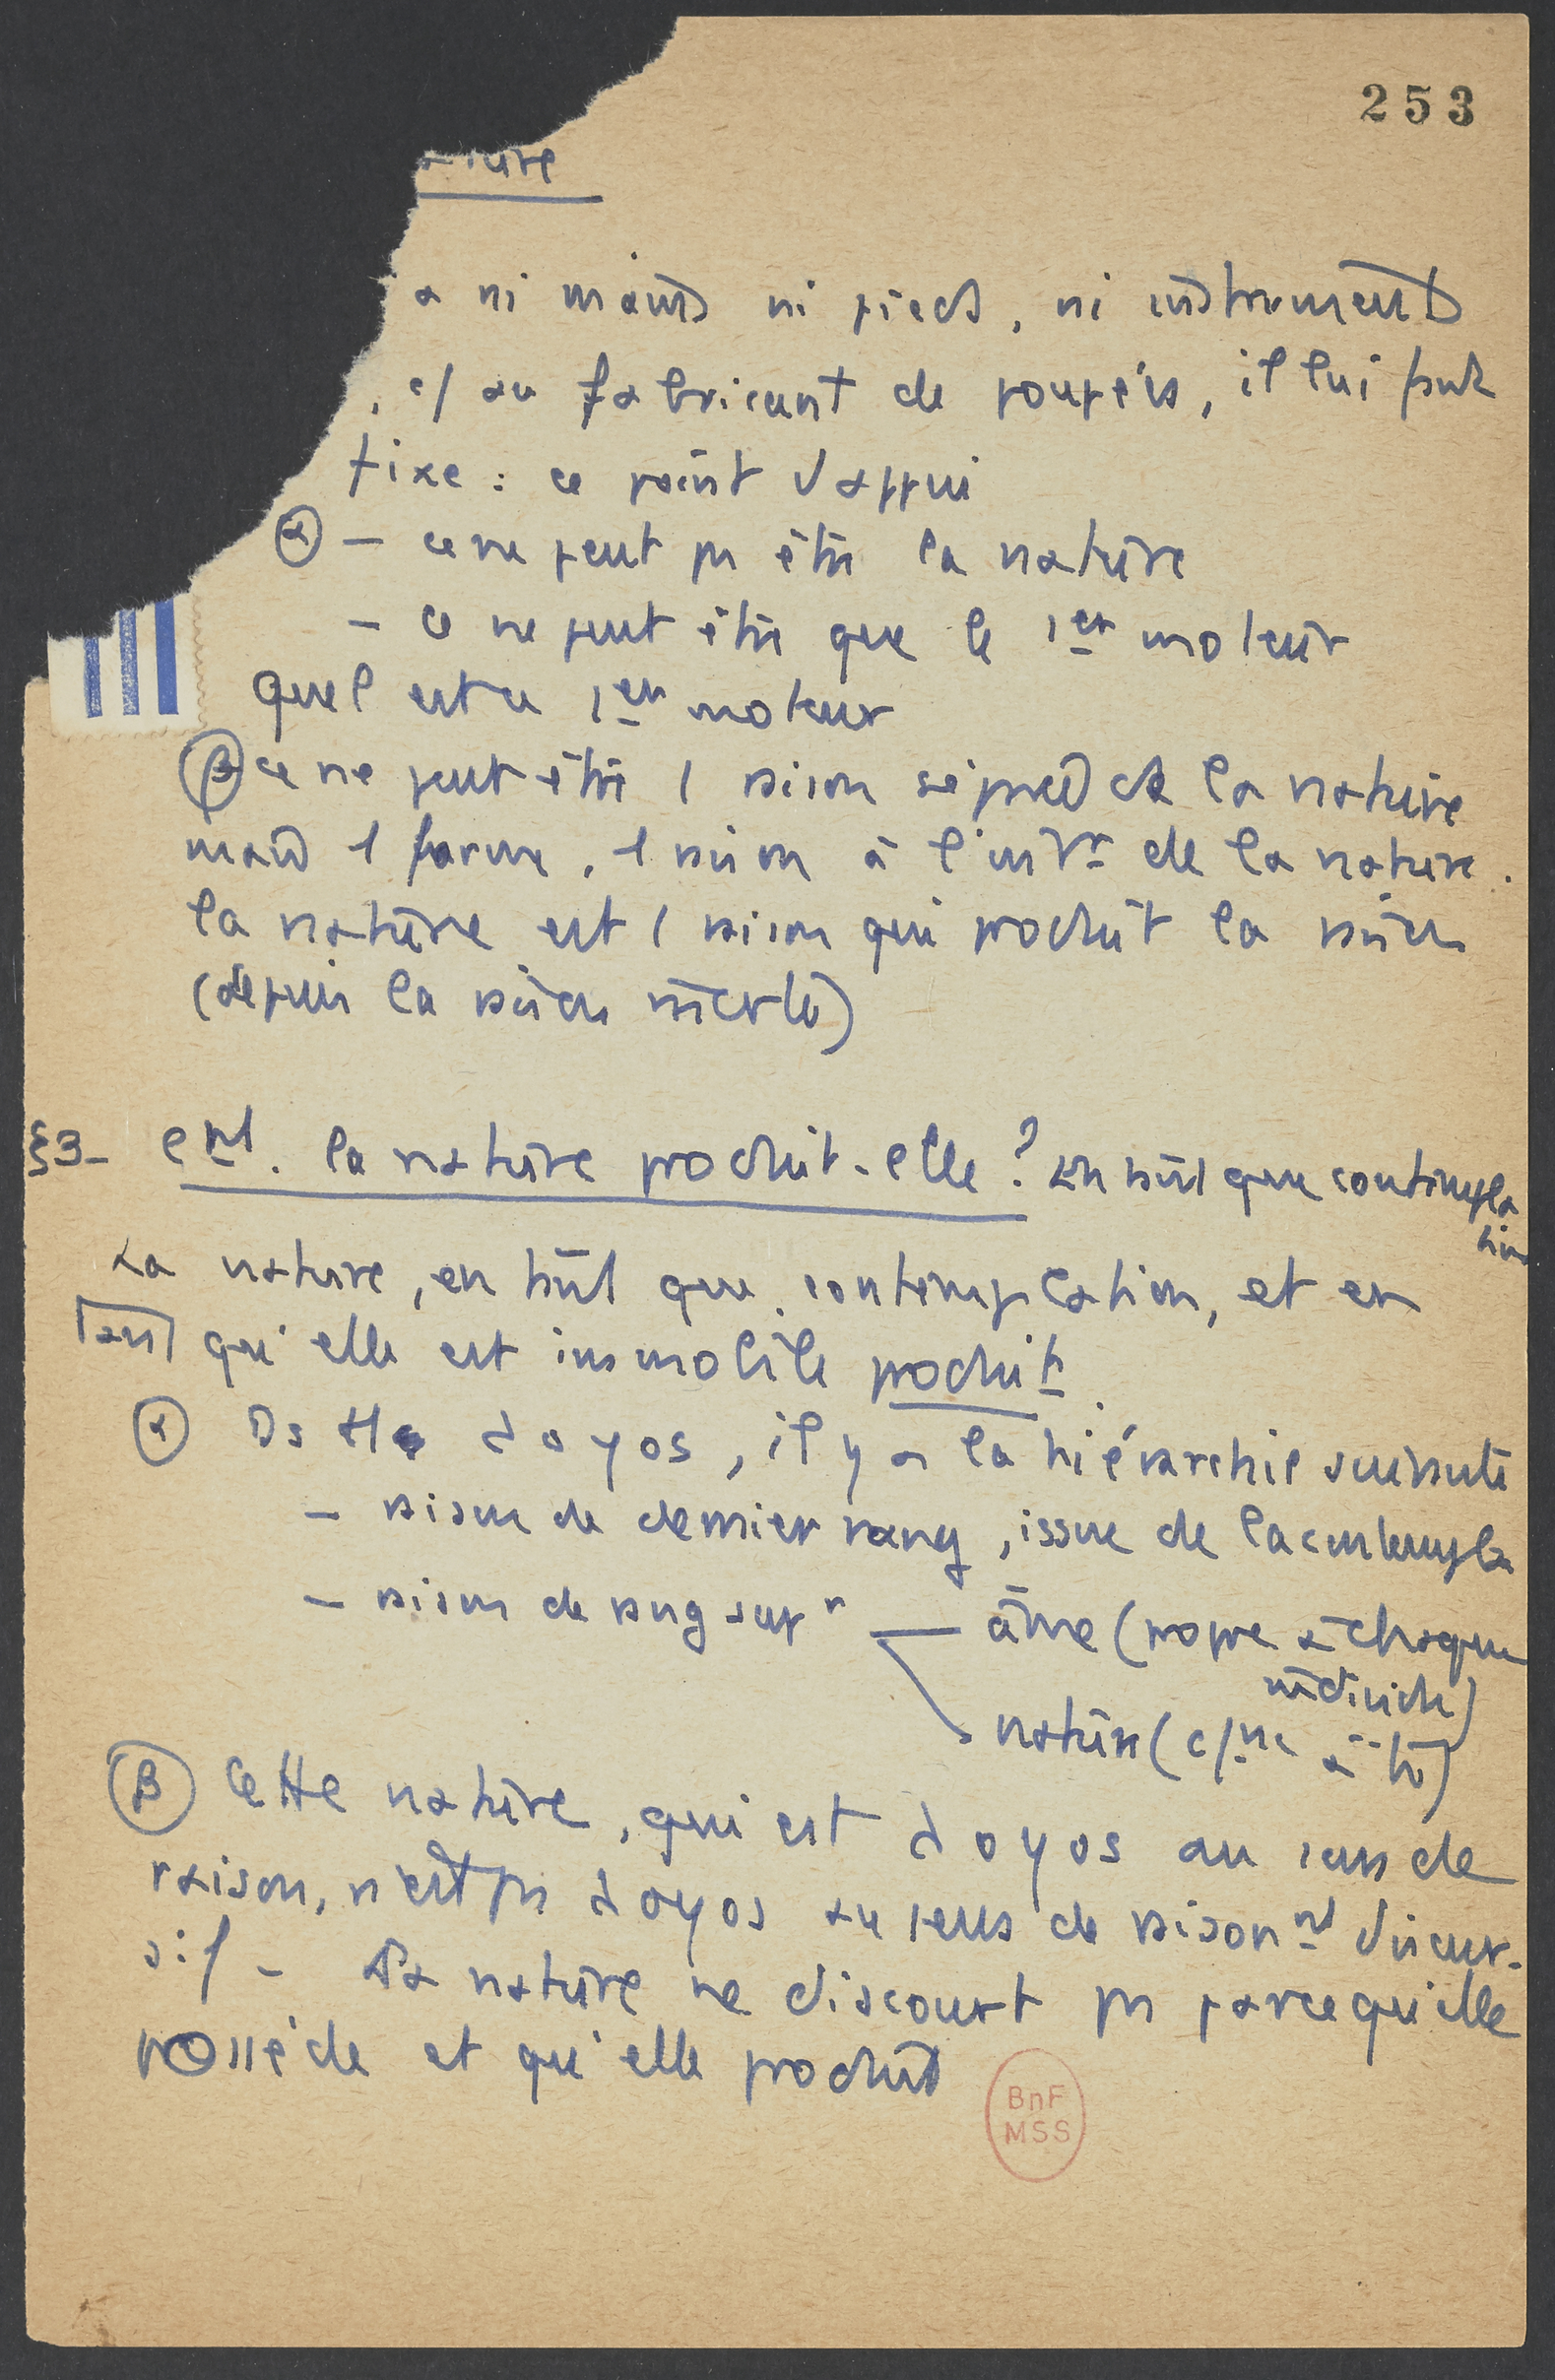 253
ature
a ni mains ni pieds, ni instruments
, c/ au fabricant de poupées, il lui faut
fixe : ce point d'appui
α – ce ne peut ps être la nature
– ce ne peut être que le 1er moteur
quel est ce 1er moteur
β ce ne peut être 1 raison séparée de la nature
mais 1 forme, 1 raison à l'intr de la nature.
la nature est 1 raison qui produit la raison
(depuis la raison
§3- Cmt. la nature produit-elle ? En tant que contempla
tion
La nature, en tant que contemplation, et en
tant qu'elle est immobile produit.
α Ds tt λογος, il y a la hiérarchie suivante
– raison de dernier rang, issue de la contempla
– raison de rang supr — âme (propre à chaque
individu)
nature (c/ne à ts)
β Cette nature, qui est λογος au sens de
raison, n'est ps λογος au sens de raisonnt discur-
sif – La nature ne discourt ps parce qu'elle
possède et qu'elle produit
BnF
MSS